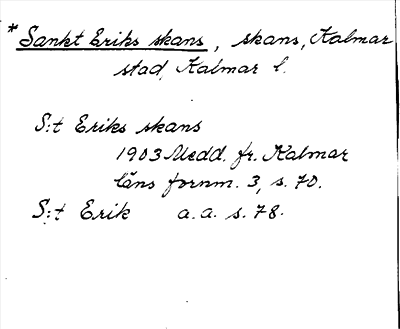 * Sankt Eriks skans, skans, Kalmar
stad, Kalmar l.
S:t Eriks skans
1903 Medd. fr. Kalmar
läns fornm. 3, s. 70.
S:t Erik a.a. s. 78.